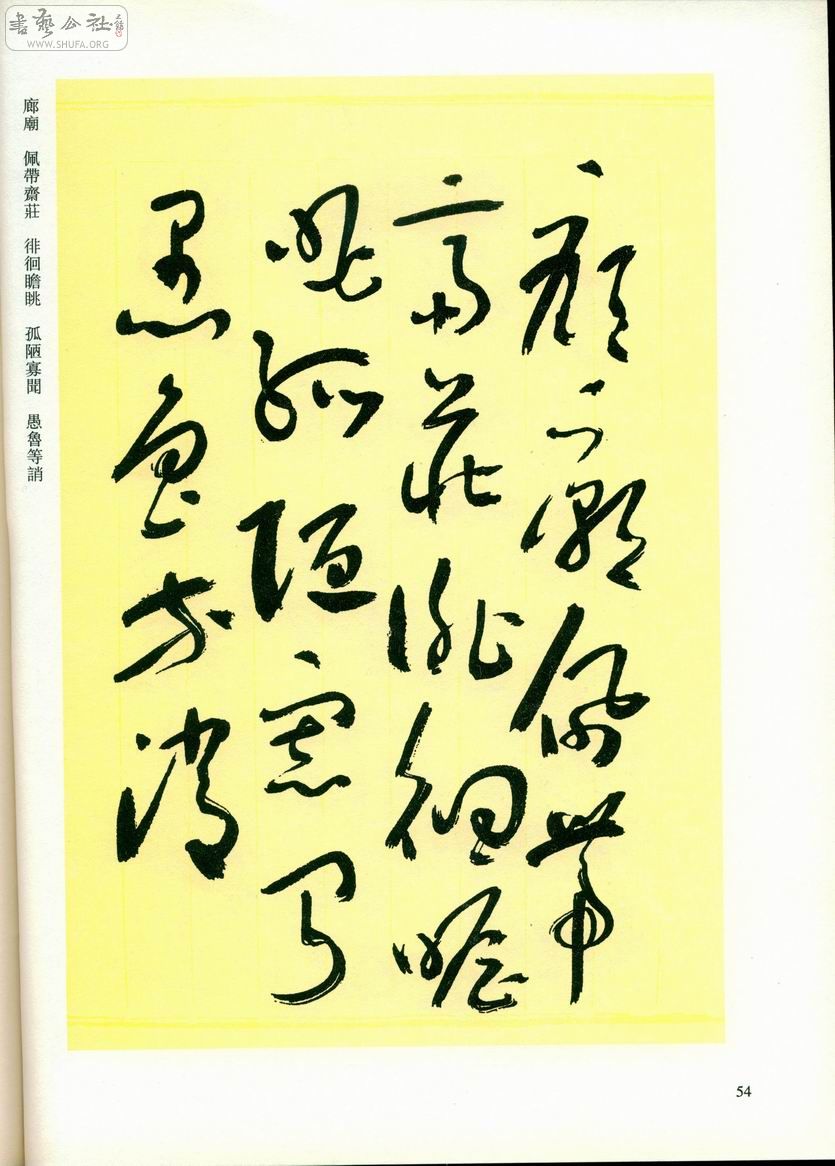 書藝公社
WWW.SHUFA.ORG
廊廟佩帶
齋莊徘徊瞻
眺孤陋寡聞
愚魯等誚
廊廟 佩帶齋莊 徘徊瞻眺 孤陋寡聞 愚魯等誚
54